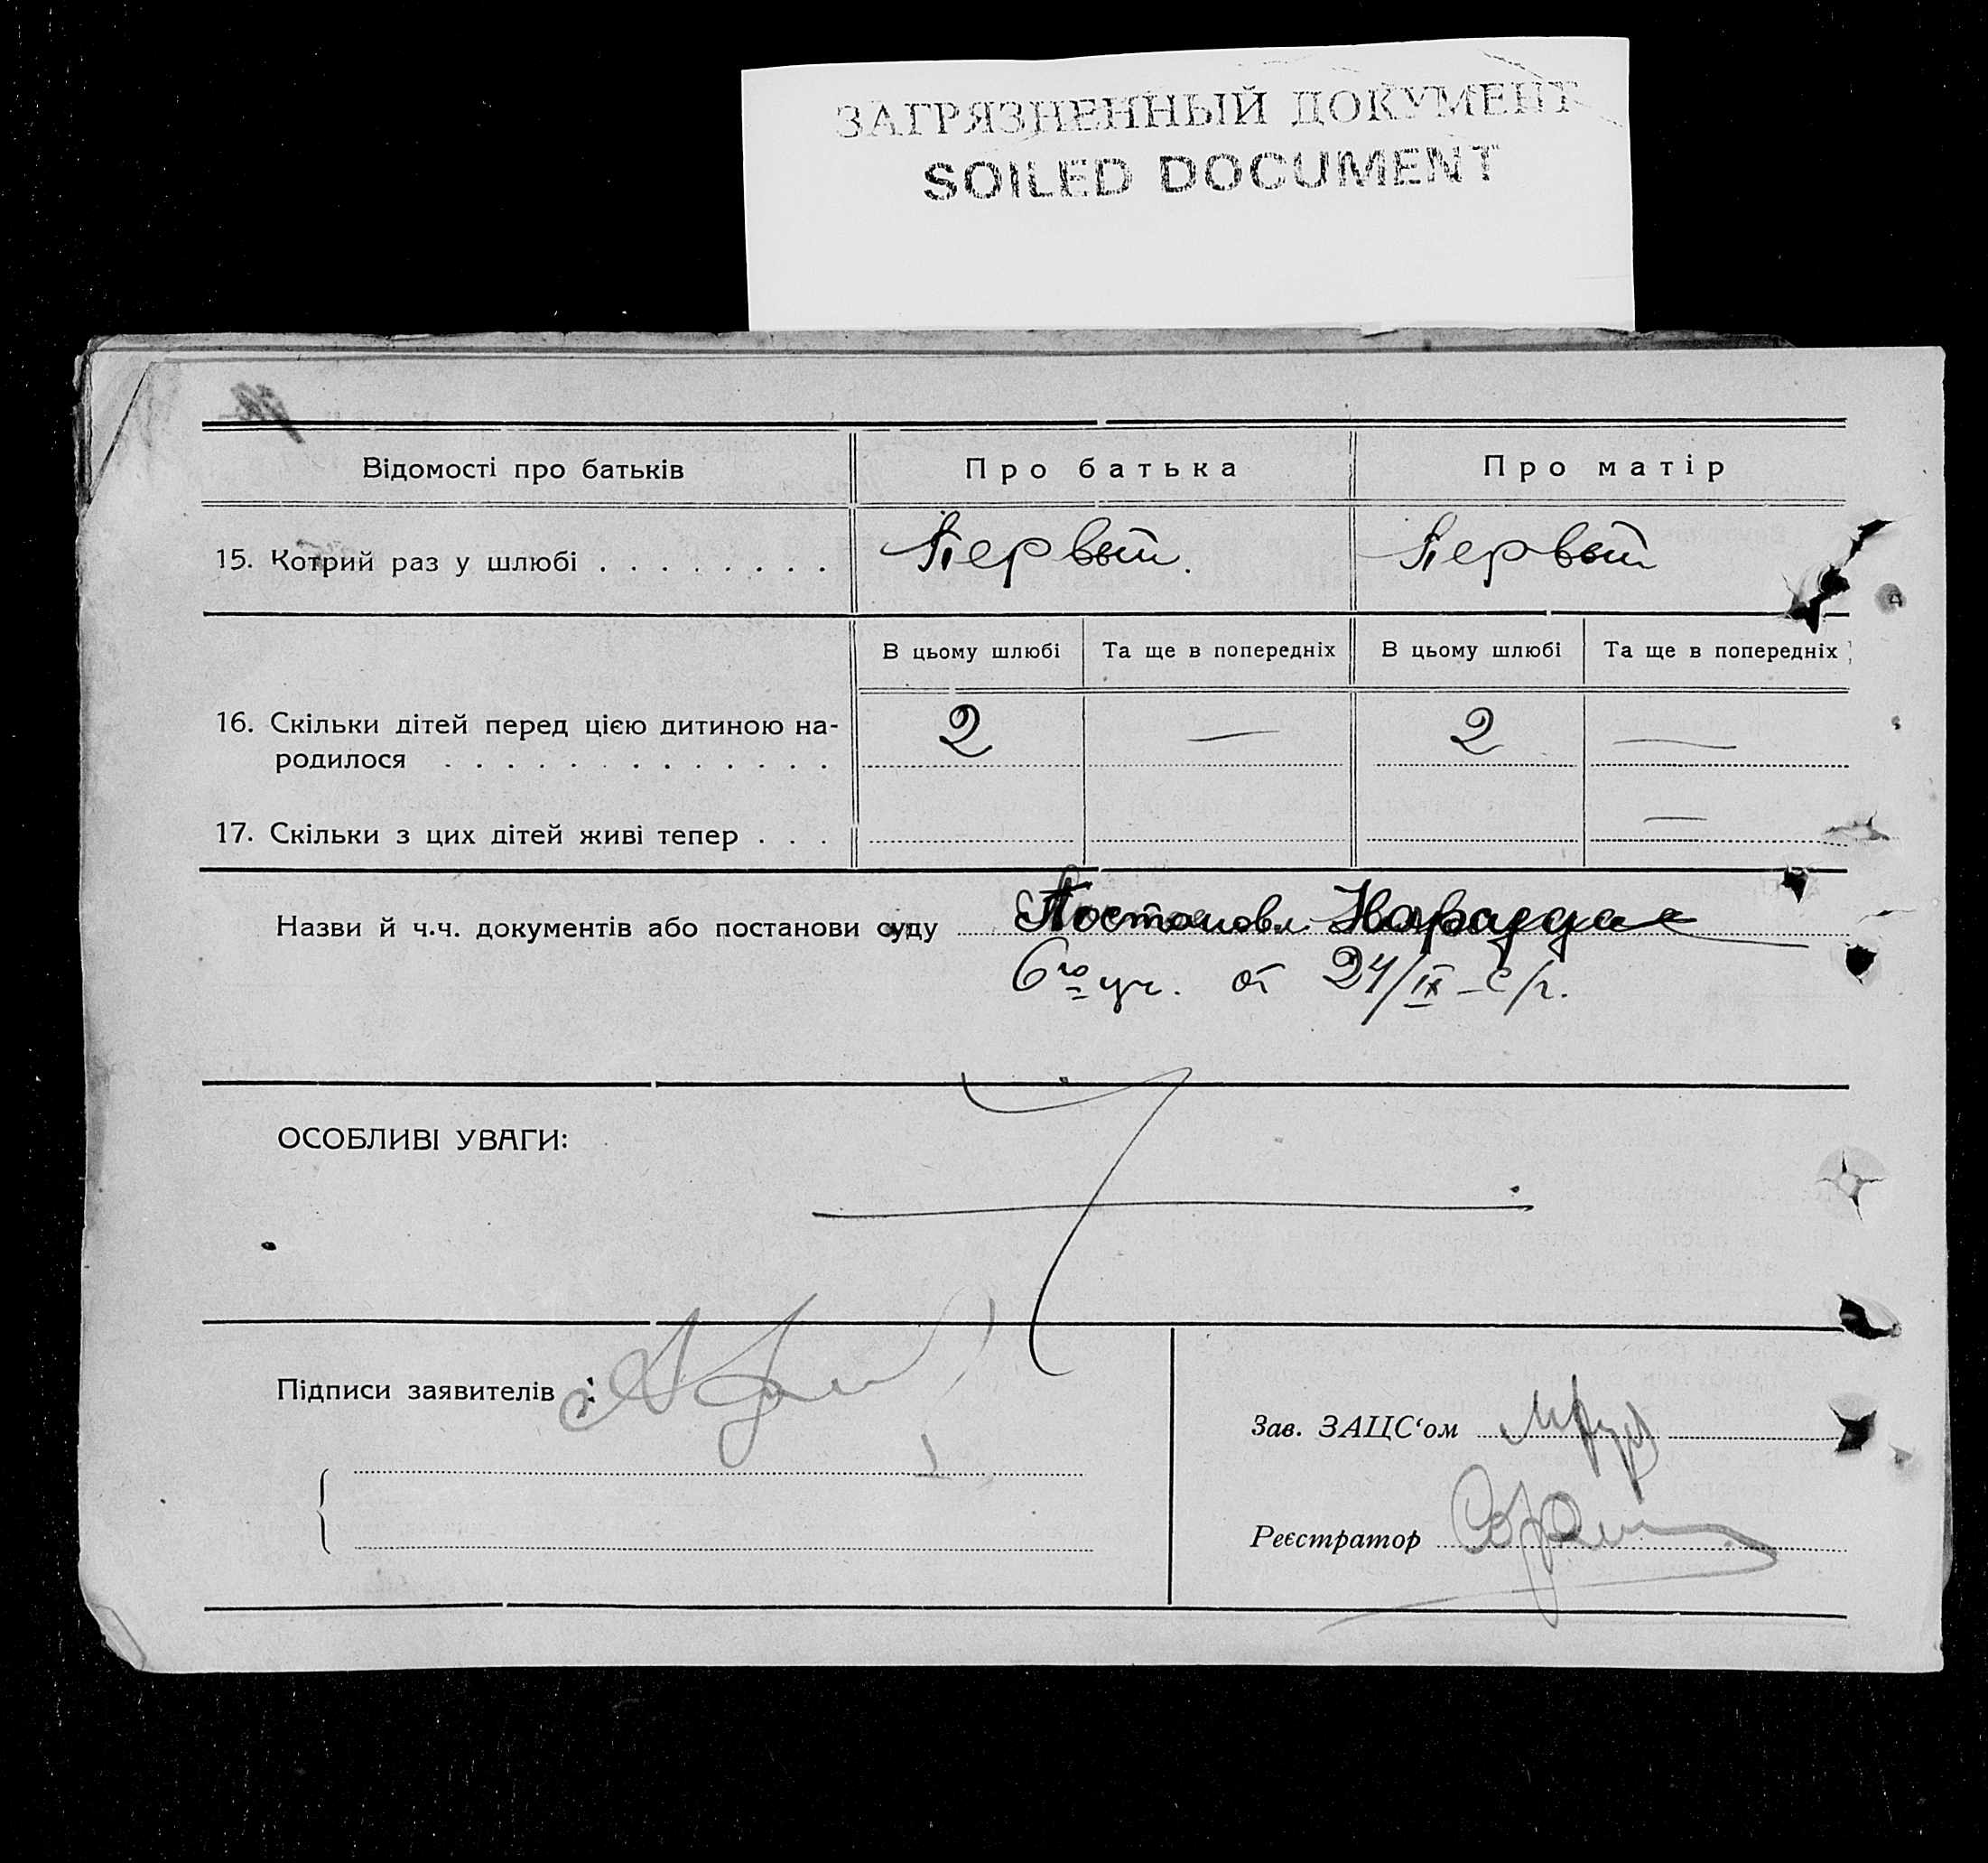 ЗАГРЯЗНЕННЫЙ ДОКУМЕНТ
SOILED DOCUMENT
Відомості про батьків Про батька Про матір
15. Котрий раз у шлюбі . . . . . . . . Первый. Первый
В цьому шлюбі Та ще в попередніх В цьому шлюбі Та ще в попередніх
16. Скільки дітей перед цією дитиною на-
родилося . . . . . . . . . . . . . 2 — 2 —
17. Скільки з цих дітей живі тепер . . . —
Назви й ч.ч. документів або постанови суду Постановл. Нарсуда
6го уч. от 24/IX – с/г.
ОСОБЛИВІ УВАГИ:
Підписи заявителів :
Зав. ЗАЦС‘ом
Реєстратор